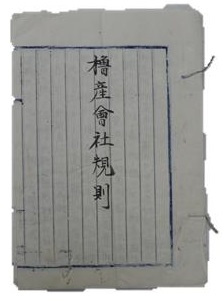 櫓産會社規則